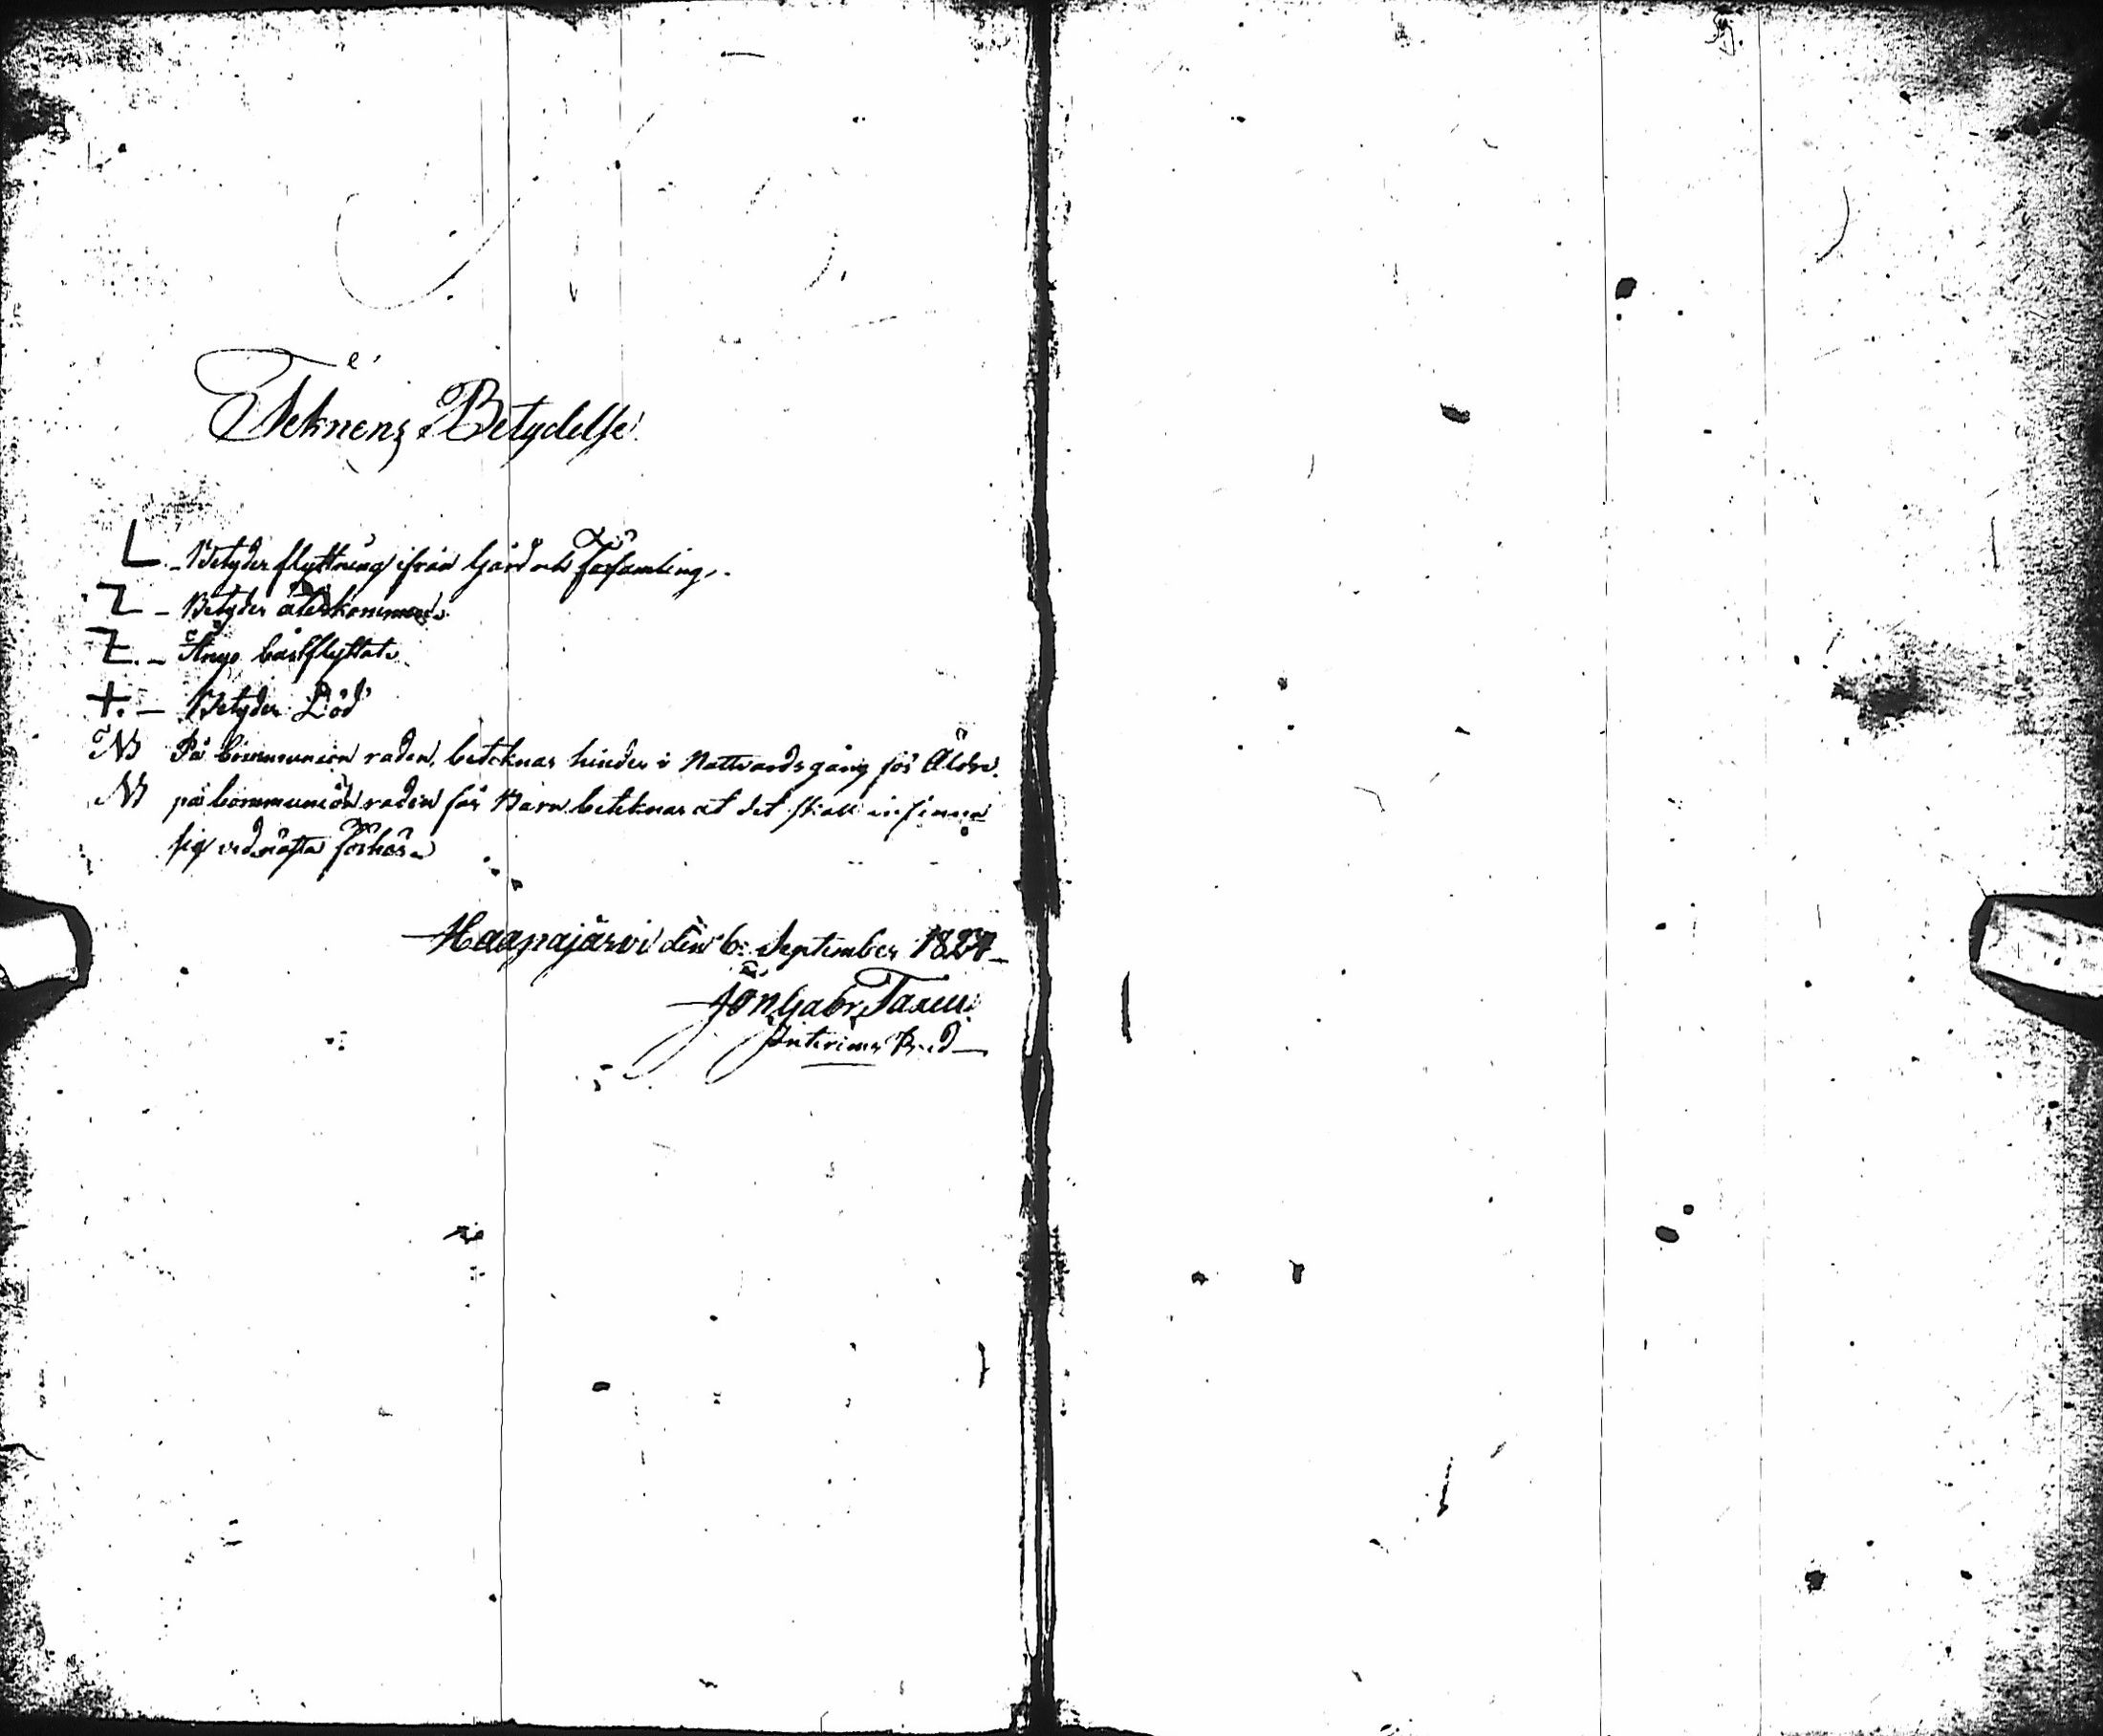 Teknens Betydelse
L. – Betyder flyttning ifrån Gård och Församling.
Z – Betyder återkommen
Z. – Ånyo bårtflyttat
+. – Betyder Död
NB På Communion raden, beteknas hinder i Nattvardsgång för Äldre.
NB på Communion raden för Barn beteknas at det skall infinna
sig vid nästa förhör
Haapajärvi den 6: September 1827
Jon Gabr
Interims